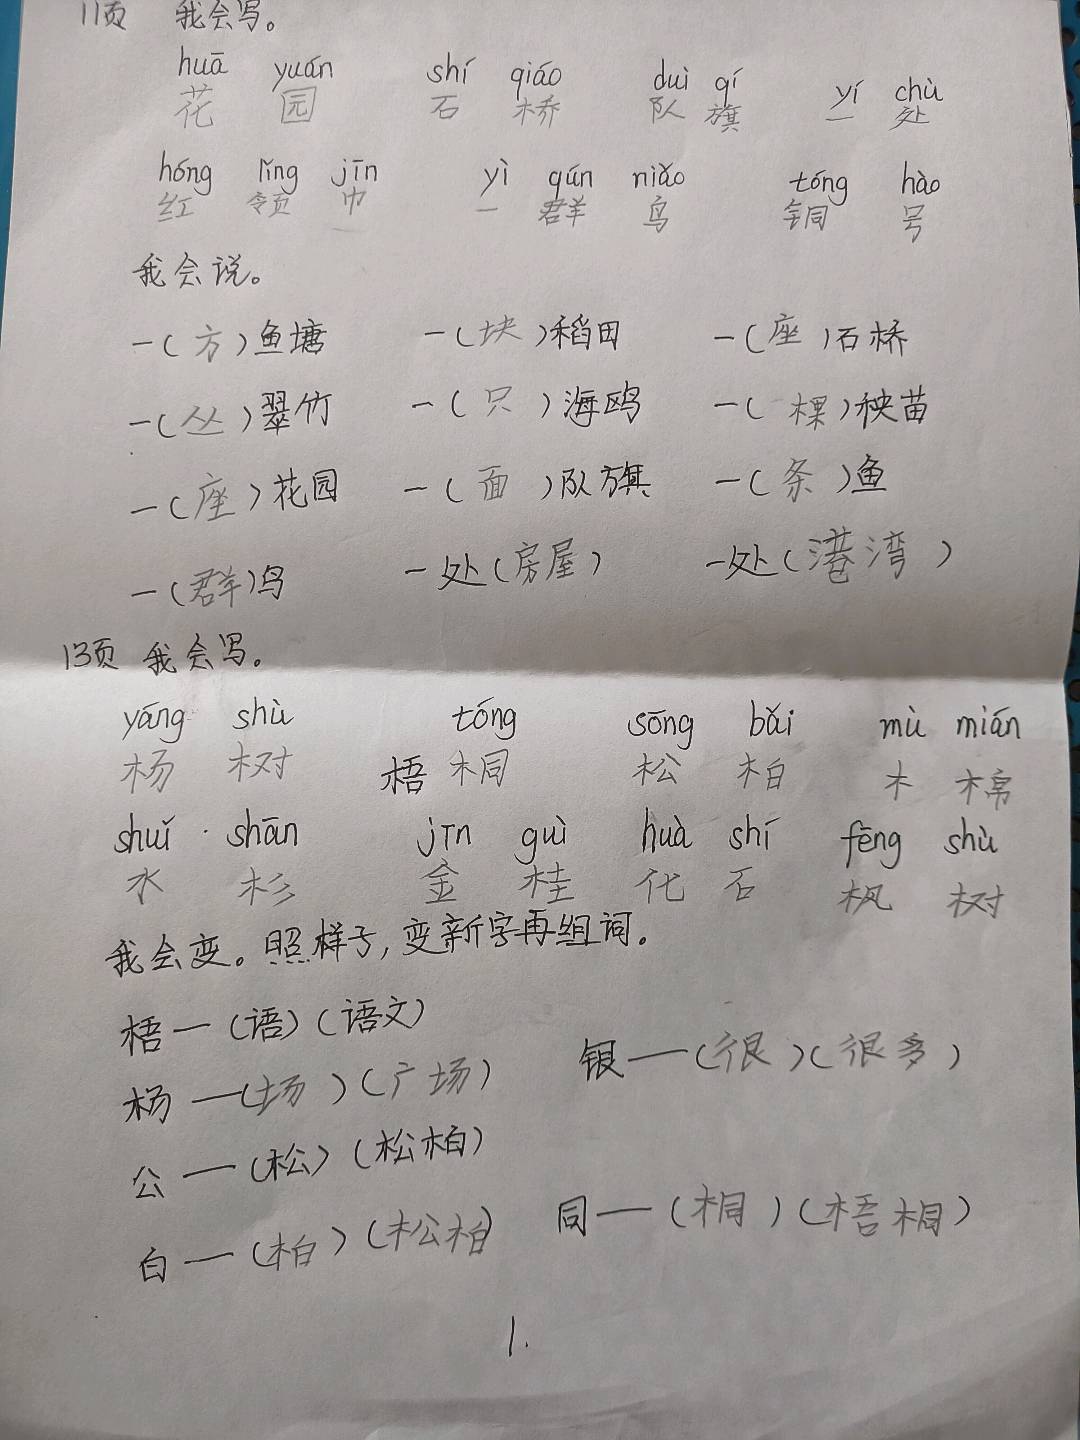 11页 我会写。
huā yuán shí qiáo duì qí yí chù
花 园 石 桥 队 旗 一 处
hóng lǐng jīn yì qún niǎo tóng hào
红 领 巾 一 群 鸟 铜 号
我会说。
一(方)鱼塘 一(块)稻田 一(座)石桥
一(丛)翠竹 一(只)海鸥 一(棵)秧苗
一(座)花园 一(面)队旗 一(条)鱼
一(群)鸟 一处(房屋) 一处(港湾)
13页 我会写。
yáng shù tóng sōng bǎi mù mián
杨 树 梧 桐 松 柏 木 棉
shuǐ shān jīn guì huà shí fēng shù
水 杉 金 桂 化 石 枫 树
我会变。照样子,变新字再组词。
梧一(语)(语文)
银一(很)(很多)
杨一(场)(广场)
公一(松)(松柏)
同一(桐)(梧桐)
白一(柏)(松柏)
1.